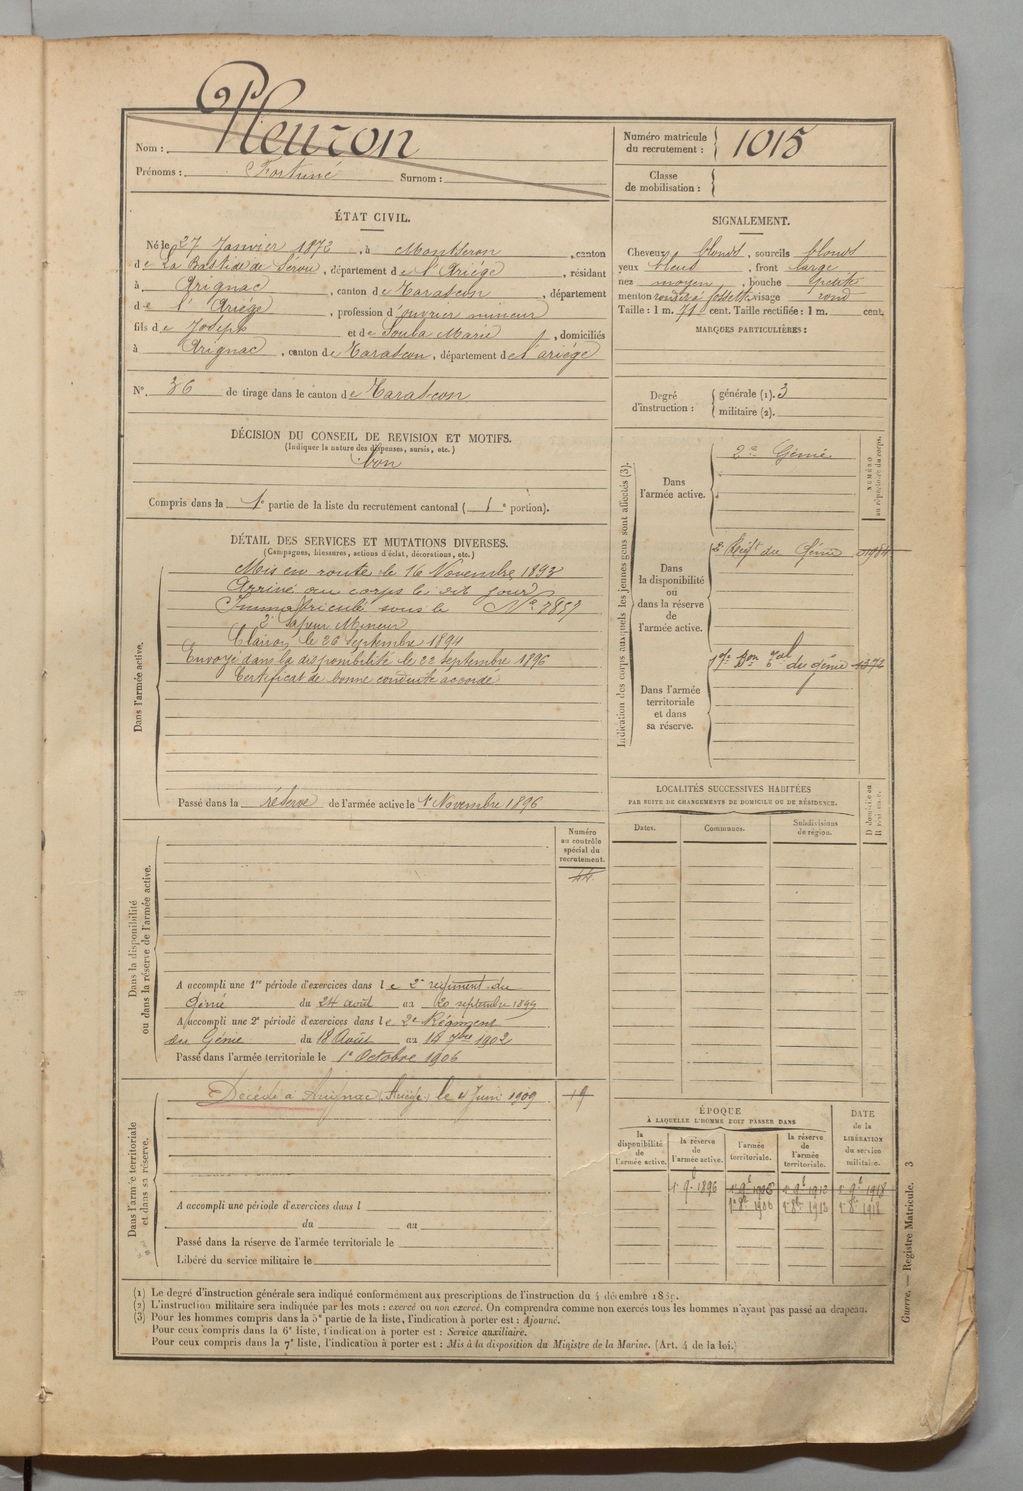 Nom : Pleuron
Prénoms : Fortuné Surnom :
Numéro matricule du recrutement : 1015
Classe de mobilisation :
ÉTAT CIVIL.
Né le 27 Janvier 1872, à Montseron, canton
de La Bastide de Sérou, département de l'Ariège, résidant
à Arignac, canton de Tarascon, département
de l'Ariège, profession d'ouvrier mineur
fils de Joseph et de Soula Marie, domiciliés
à Arignac, canton de Tarascon, département de l'ariège
N°. 36 de tirage dans le canton de Tarascon
SIGNALEMENT.
Cheveux blonds, sourcils blonds
yeux bleus, front large
nez moyen, bouche petite
menton rond à fossette visage rond
Taille : 1 m. 71 cent. Taille rectifiée : 1 m. cent.
MARQUES PARTICULIÈRES :
Degré d'instruction : générale (1). 3
militaire (2).
DÉCISION DU CONSEIL DE REVISION ET MOTIFS.
(Indiquer la nature des dispenses, sursis, etc.)
bon
Compris dans la 1e partie de la liste du recrutement cantonal ( 1e portion).
DÉTAIL DES SERVICES ET MUTATIONS DIVERSES.
(Campagnes, blessures, actions d'éclat, décorations, etc.)
Dans l'armée active.
Mis en route le 16 Novembre 1893
Arrivé au corps le dit jour
Immatriculé sous le N° 7857
2e Sapeur Mineur
Clairon le 26 septembre 1894
Envoyé dans la disponibilité le 22 septembre 1896
Certificat de bonne conduite accordé
Passé dans la réserve de l'armée active le 1er Novembre 1896
Indication des corps auxquels les jeunes gens sont affectés (3).
NUMÉRO au répertoire du corps.
Dans l'armée active.
2e Génie
Dans la disponibilité ou dans la réserve de l'armée active.
2e Régt du Génie
Dans l'armée territoriale et dans sa réserve.
17e Bon Tal du génie
LOCALITÉS SUCCESSIVES HABITÉES
PAR SUITE DE CHANGEMENTS DE DOMICILE OU DE RÉSIDENCE.
Dates. Communes. Subdivisions de région. D domicile ou R résidence.
Dans la disponibilité ou dans la réserve de l'armée active.
Numéro au contrôle spécial du recrutement.
44
A accompli une 1re période d'exercices dans le 2e régiment du
Génie du 24 août au 20 septembre 1899
A accompli une 2e période d'exercices dans le 2e Régiment
du Génie du 18 Août au 14 7bre 1902
Passé dans l'armée territoriale le 1er Octobre 1906
Dans l'armée territoriale et dans sa réserve.
Décédé à Arignac (Ariège) le 4 Juin 1909
19
A accompli une période d'exercices dans l
du au
Passé dans la réserve de l'armée territoriale le
Libéré du service militaire le
ÉPOQUE
À LAQUELLE L'HOMME DOIT PASSER DANS
la disponibilité de l'armée active. la réserve de l'armée active. l'armée territoriale. la réserve de l'armée territoriale.
DATE de la LIBÉRATION du service militaire.
(1) Le degré d'instruction générale sera indiqué conformément aux prescriptions de l'instruction du 4 décembre 1889.
(2) L'instruction militaire sera indiquée par les mots : exercé ou non exercé. On comprendra comme non exercés tous les hommes n'ayant pas passé au drapeau.
(3) Pour les hommes compris dans la 5e partie de la liste, l'indication à porter est : Ajourné.
Pour ceux compris dans la 6e liste, l'indication à porter est : Service auxiliaire.
Pour ceux compris dans la 7e liste, l'indication à porter est : Mis à la disposition du Ministre de la Marine. (Art. 4 de la loi.)
Guerre. — Registre Matricule. 3